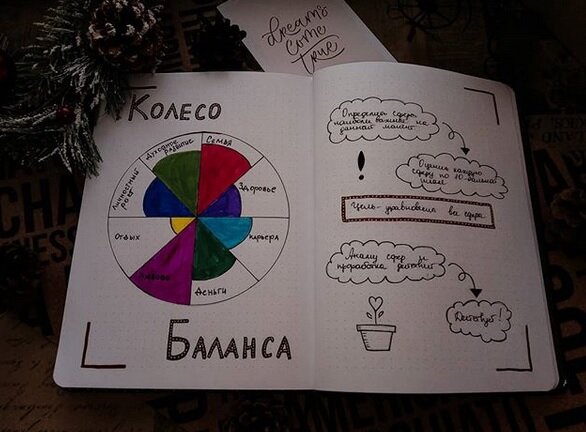 dreams
come
true
Колесо
Духовное
развитие
Семья
Личностный
рост
Здоровье
Отдых
Карьера
Деньги
Баланса
Определи сферы,
наиболее важные на
данный момент
Оцени каждую
сферу по 10-бальной
шкале
!
Цель - уравновесить все сферы.
Анализ сфер и
проработка действий
Действуй!